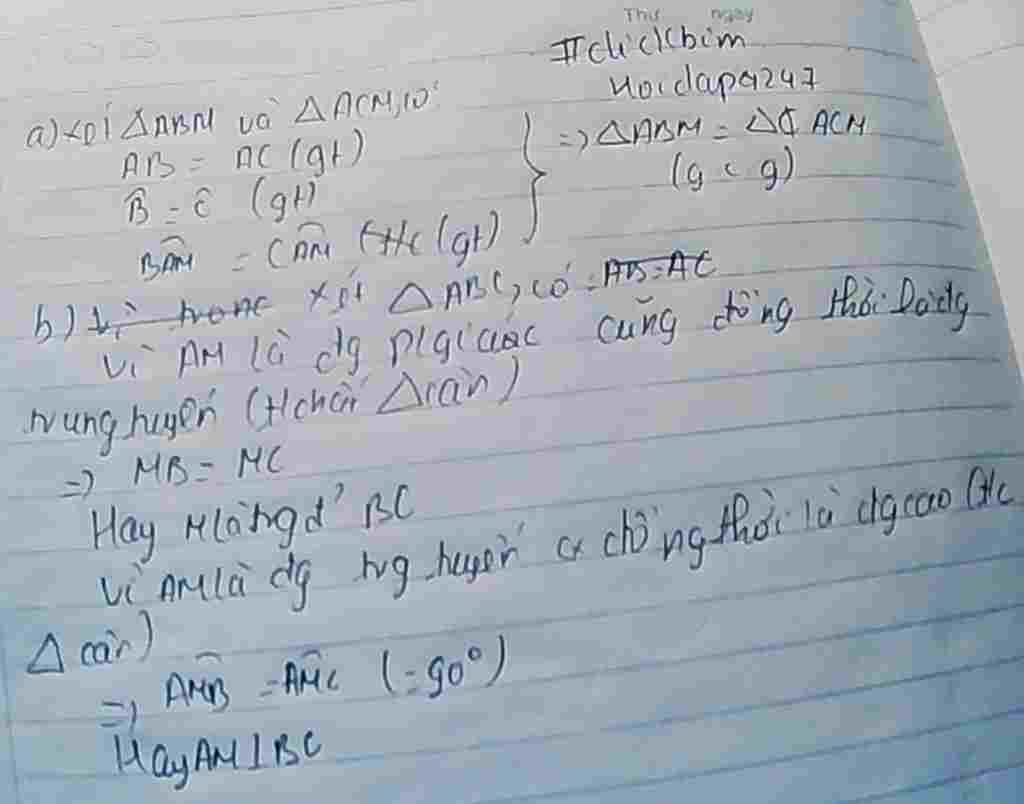 Thứ ngày
#clickbim
Hoidapq247
a) Xét ΔABM và ΔACM, có:
AB = AC (gt)
B̂ = Ĉ (gt)
BAM = CAM (gt)
=> ΔABM = Δ ACM
(g c g)
b) Vì trong Xét ΔABC, có: AB = AC
Vì AM là đg p/giác cũng đồng thời là đg
trung tuyến (t/chất Δcân)
=> MB = MC
Hay M là trg đ' BC
Vì AM là đg trg tuyến đồng thời là đg cao (t/c
Δ cân)
=> AMB = AMC (=90°)
Hay AM⊥BC